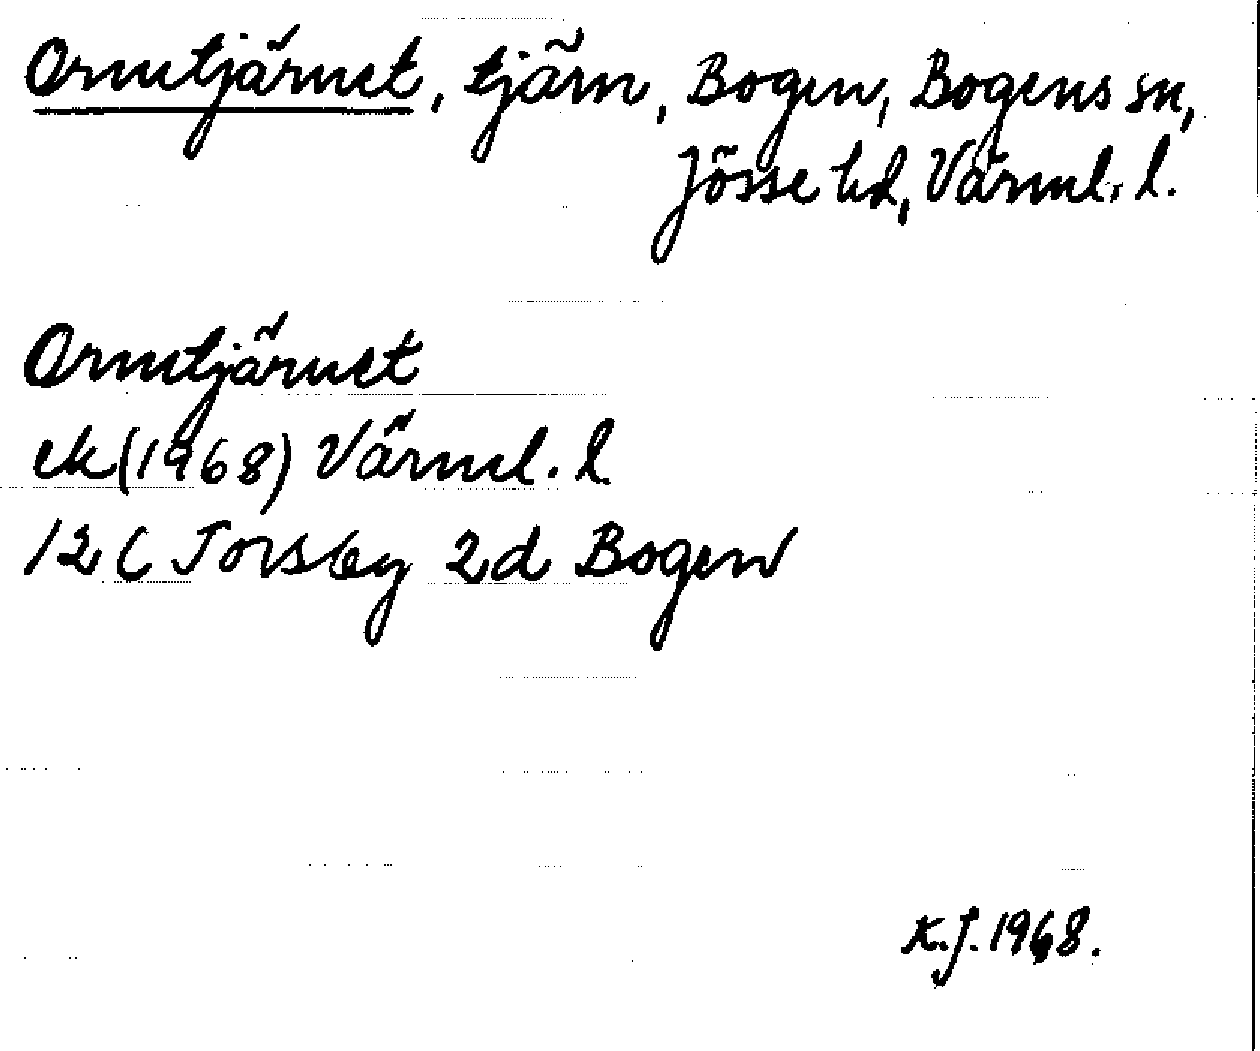 Ormtjärnet, tjärn, Bogen, Bogens sn,
Jösse hd, Värml. l.
Ormtjärnet
ek (1968) Värml. l
12 C Torsby 2d Bogen
K.J. 1968.